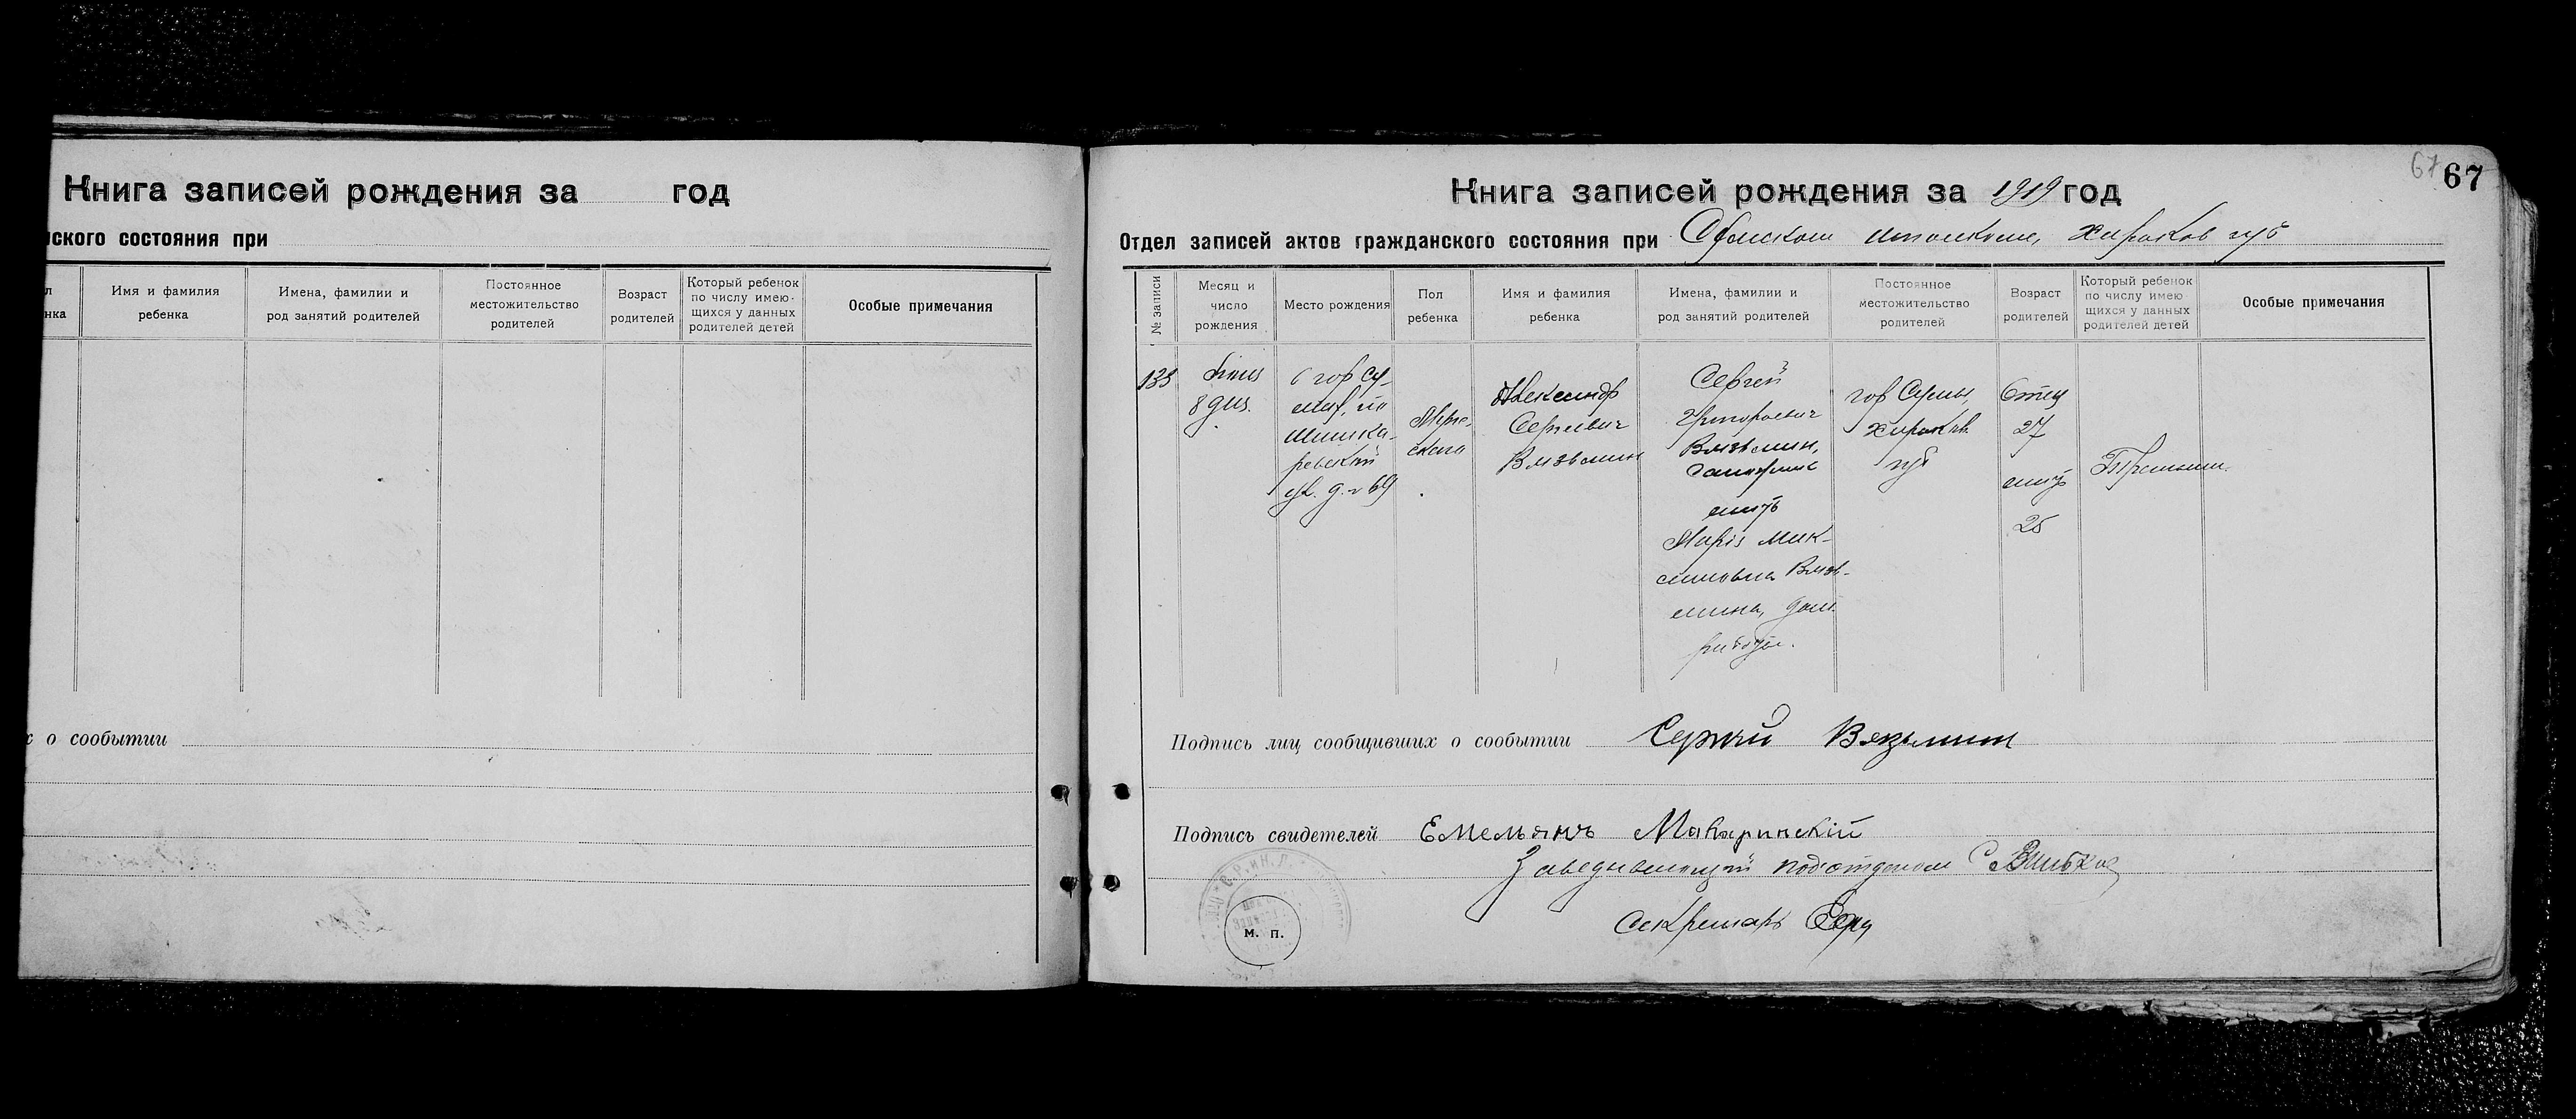 Книга записей рождения за год
ского состояния при
Имя и фамилия ребенка
Имена, фамилии и род занятий родителей
Постоянное местожительство родителей
Возраст родителей
Который ребенок по числу имею-щихся у данных родителей детей
Особые примечания
о сообытии
67
67
Книга записей рождения за 1919 год
Отдел записей актов гражданского состояния при Сумском
№ записи
Месяц и число рождения
Место рождения
Пол ребенка
Имя и фамилия ребенка
Имена, фамилии и род занятий родителей
Постоянное местожительство родителей
Возраст родителей
Который ребенок по числу имею щихся у данных родителей детей
Особые примечания
133
8 дня.
гор Су-
мах, по
ул. д. № 69
Муже-
ского
Александр
Сергеевич
Вязьмин
Сергей
Григорьевич
Вязьмин,
мать
Марія Мак-
симовна Вязь-
мина, дом.
работы.
гор Сумы,
Харьков.
губ
Отец
27
мать
25
Третьим.
Подпись лиц сообщивших о сообытии Сергей Вязьмин
Подпись свидетелей Емельянъ
Заведывающий подотделом
Секретарь
м. п.